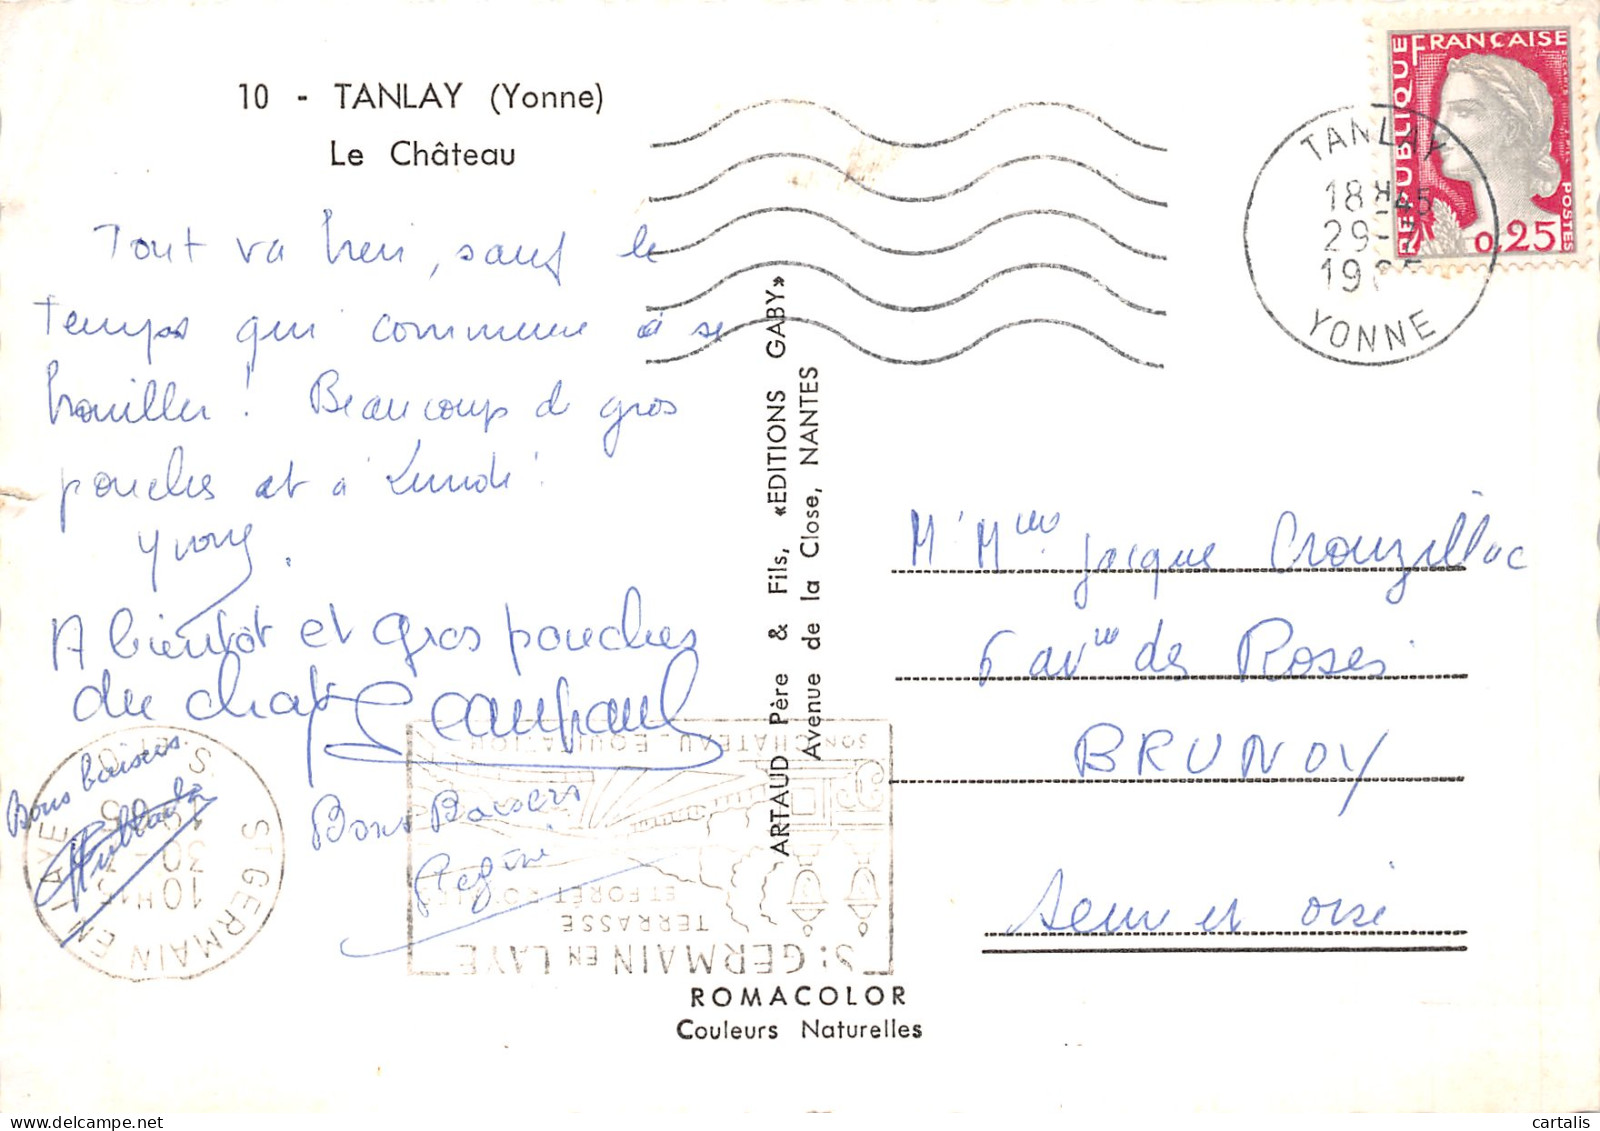 10 - TANLAY (Yonne)
Le Château
Tout va bien, sauf le
temps qui commence à se
brouiller! Beaucoup de gros
pouches et à Lundi!
Yvory.
A bientôt et gros pouches
du chat Jeanpaul
Bons baisers
Bons Baisers
Régine
ARTAUD Père & Fils, «EDITIONS GABY»
Avenue de la Close, NANTES
ROMACOLOR
Couleurs Naturelles
REPUBLIQUE FRANÇAISE
POSTES
0,25
TANLAY
18H45
29-7
19
YONNE
M. Mme Jacques Crouzillac
6 avue des Roses
BRUNOY
Seine et oise
ST GERMAIN EN LAYE
10H
30
ST GERMAIN EN LAYE
TERRASSE
ET FORÊT
SON CHATEAU - EQUITATION
cartalis